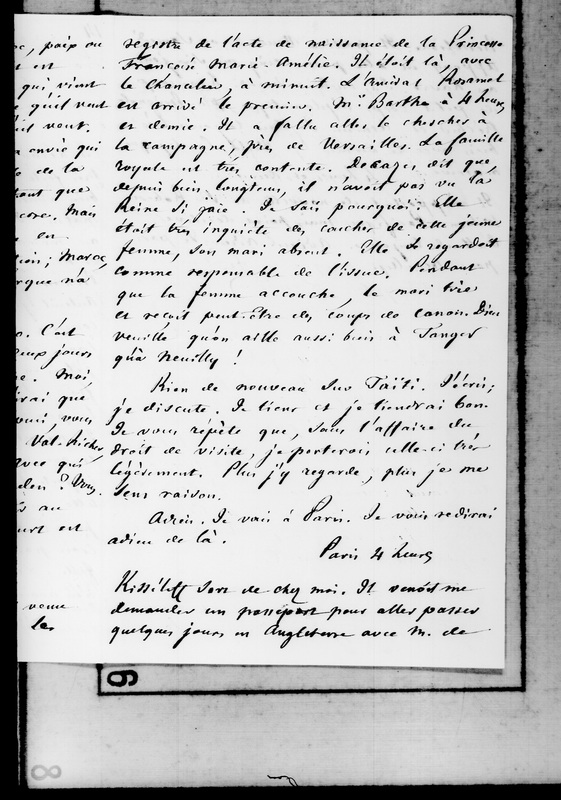 registre de l'acte de naissance de la Princesse
Françoise Marie-Amélie. Il était là, avec
le Chancelier, à minuit. L'amiral Rosamel
est arrivé le premier. Mr Barthe à 4 heures
et demie. Il a fallu aller le chercher à
la campagne, près de Versailles. La famille
royale est très contente. Decazes dit que,
depuis bien longtems, il n'avait pas vu la
Reine si gaie. Je sais pourquoi ; Elle
était très inquiète des couches de cette jeune
femme, son mari absent. Elle se regardait
comme responsable de l'issue. Pendant
que la femme accouche, le mari tire
et reçoit peut-être des coups de canon. Dieu
veuille qu'on aille aussi bien à Tanger
qu'à Neuilly !
Rien de nouveau sur Taïti. J'écris ;
je discute. Je tiens et je tiendrai bon.
Je vous répète que, sans l'affaire du
droit de visite, je porterais celle-ci très
légèrement. Plus j'y regarde, plus je me
sens raison.
Adieu. Je vais à Paris. Je vous redirai
adieu de là.
Paris 4 heures
Kisséleff sort de chez moi. Il venait me
demander un passeport pour aller passer
quelques jours en Angleterre avec M. de
paix ou
est
qui, vient
qu'il veut
veut.
envie qui
de la
tout que
encore. Mais
en
Maroc,
n'a
C'est
jours
Moi,
que
vous
Val-Richer,
qu'
Vous
au
est
venue
les
6
8